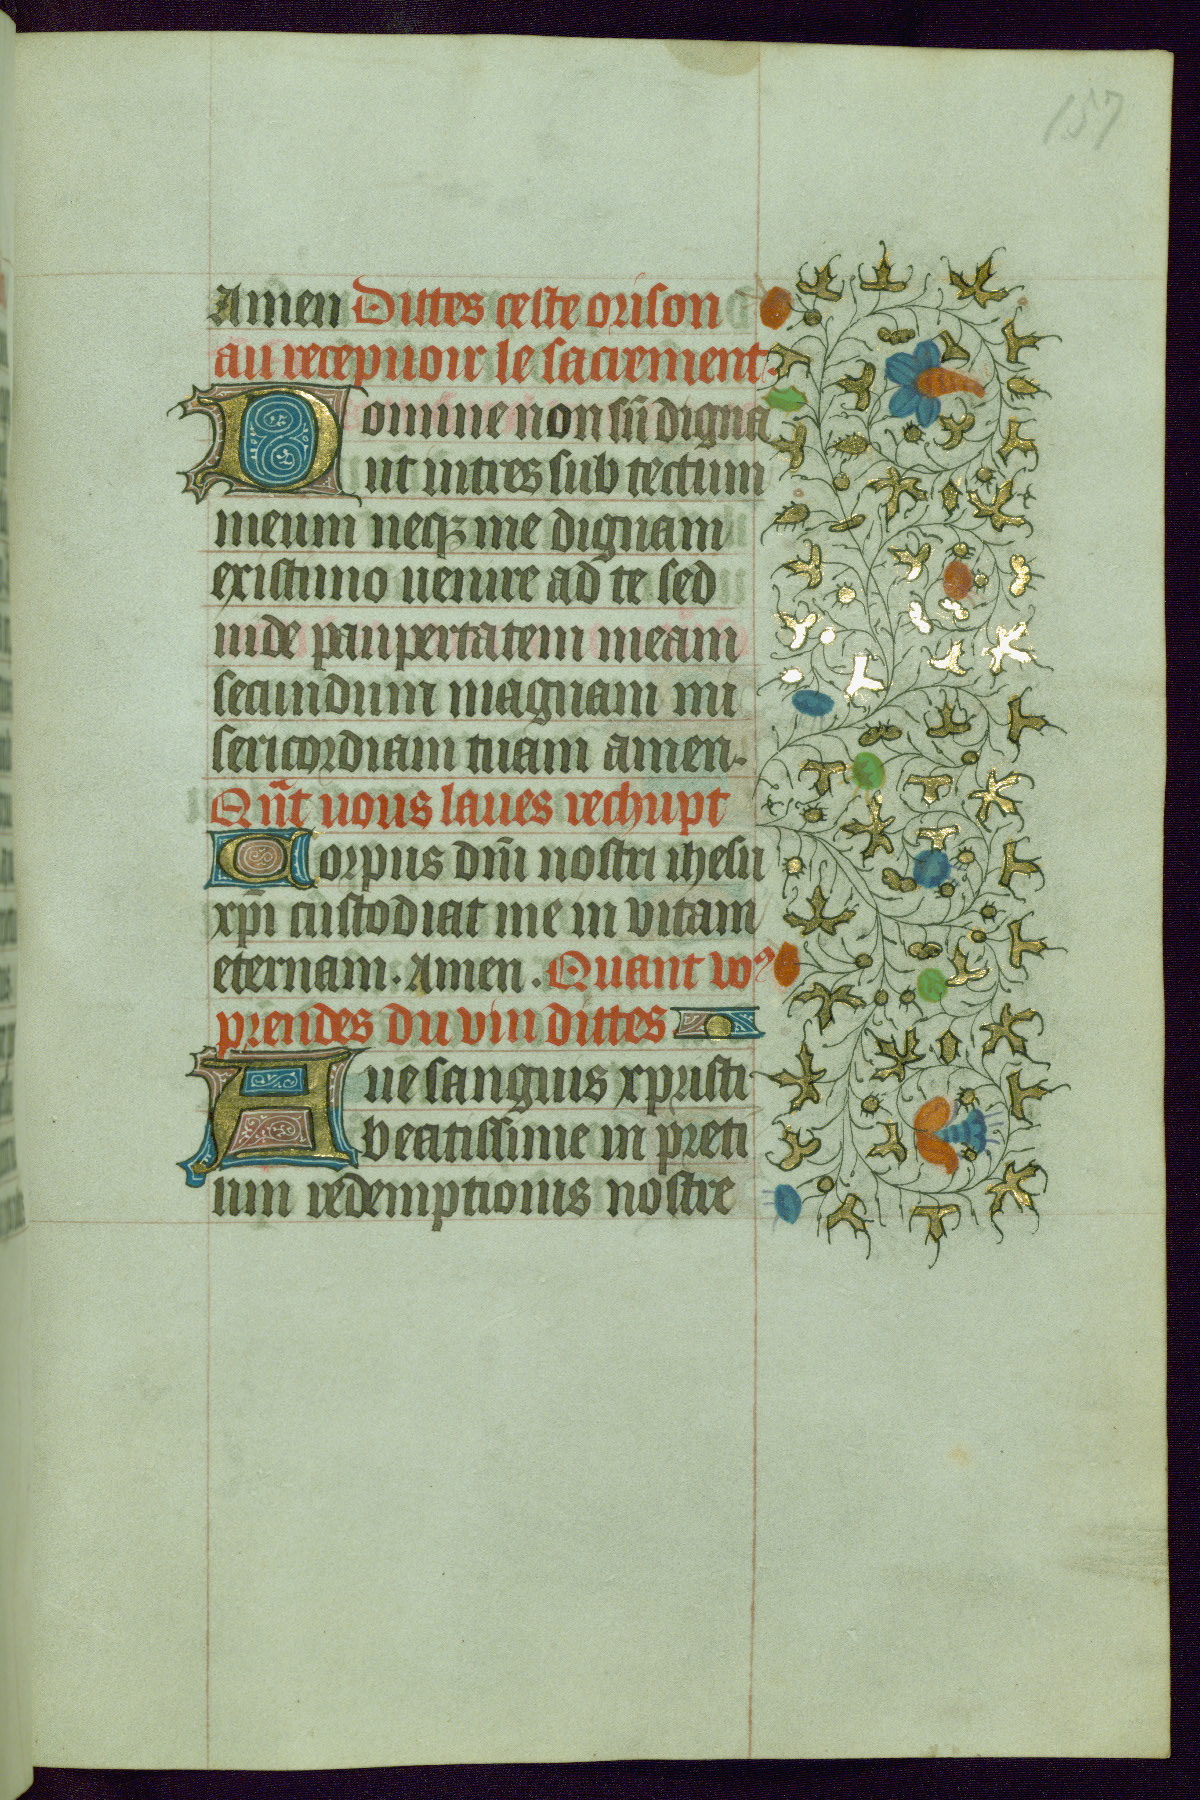 157
Amen Dittes ceste orison
au recepuoir le sacrement.
Domine non sũ digna
ut intres sub tectum
meum neqꝫ me dignam
existimo uenire ad te sed
uide paupertatem meam
secundum magnam mi
sericordiam tuam amen.
Qñt uous laues rechupt
Corpus dñi nostri ihesu
xp̃i custodiat me in vitam
eternam. Amen. Quant voꝰ
prendes du vin dittes
Aue sanguis xpristi
beatissime in preti
um redemptionis nostre